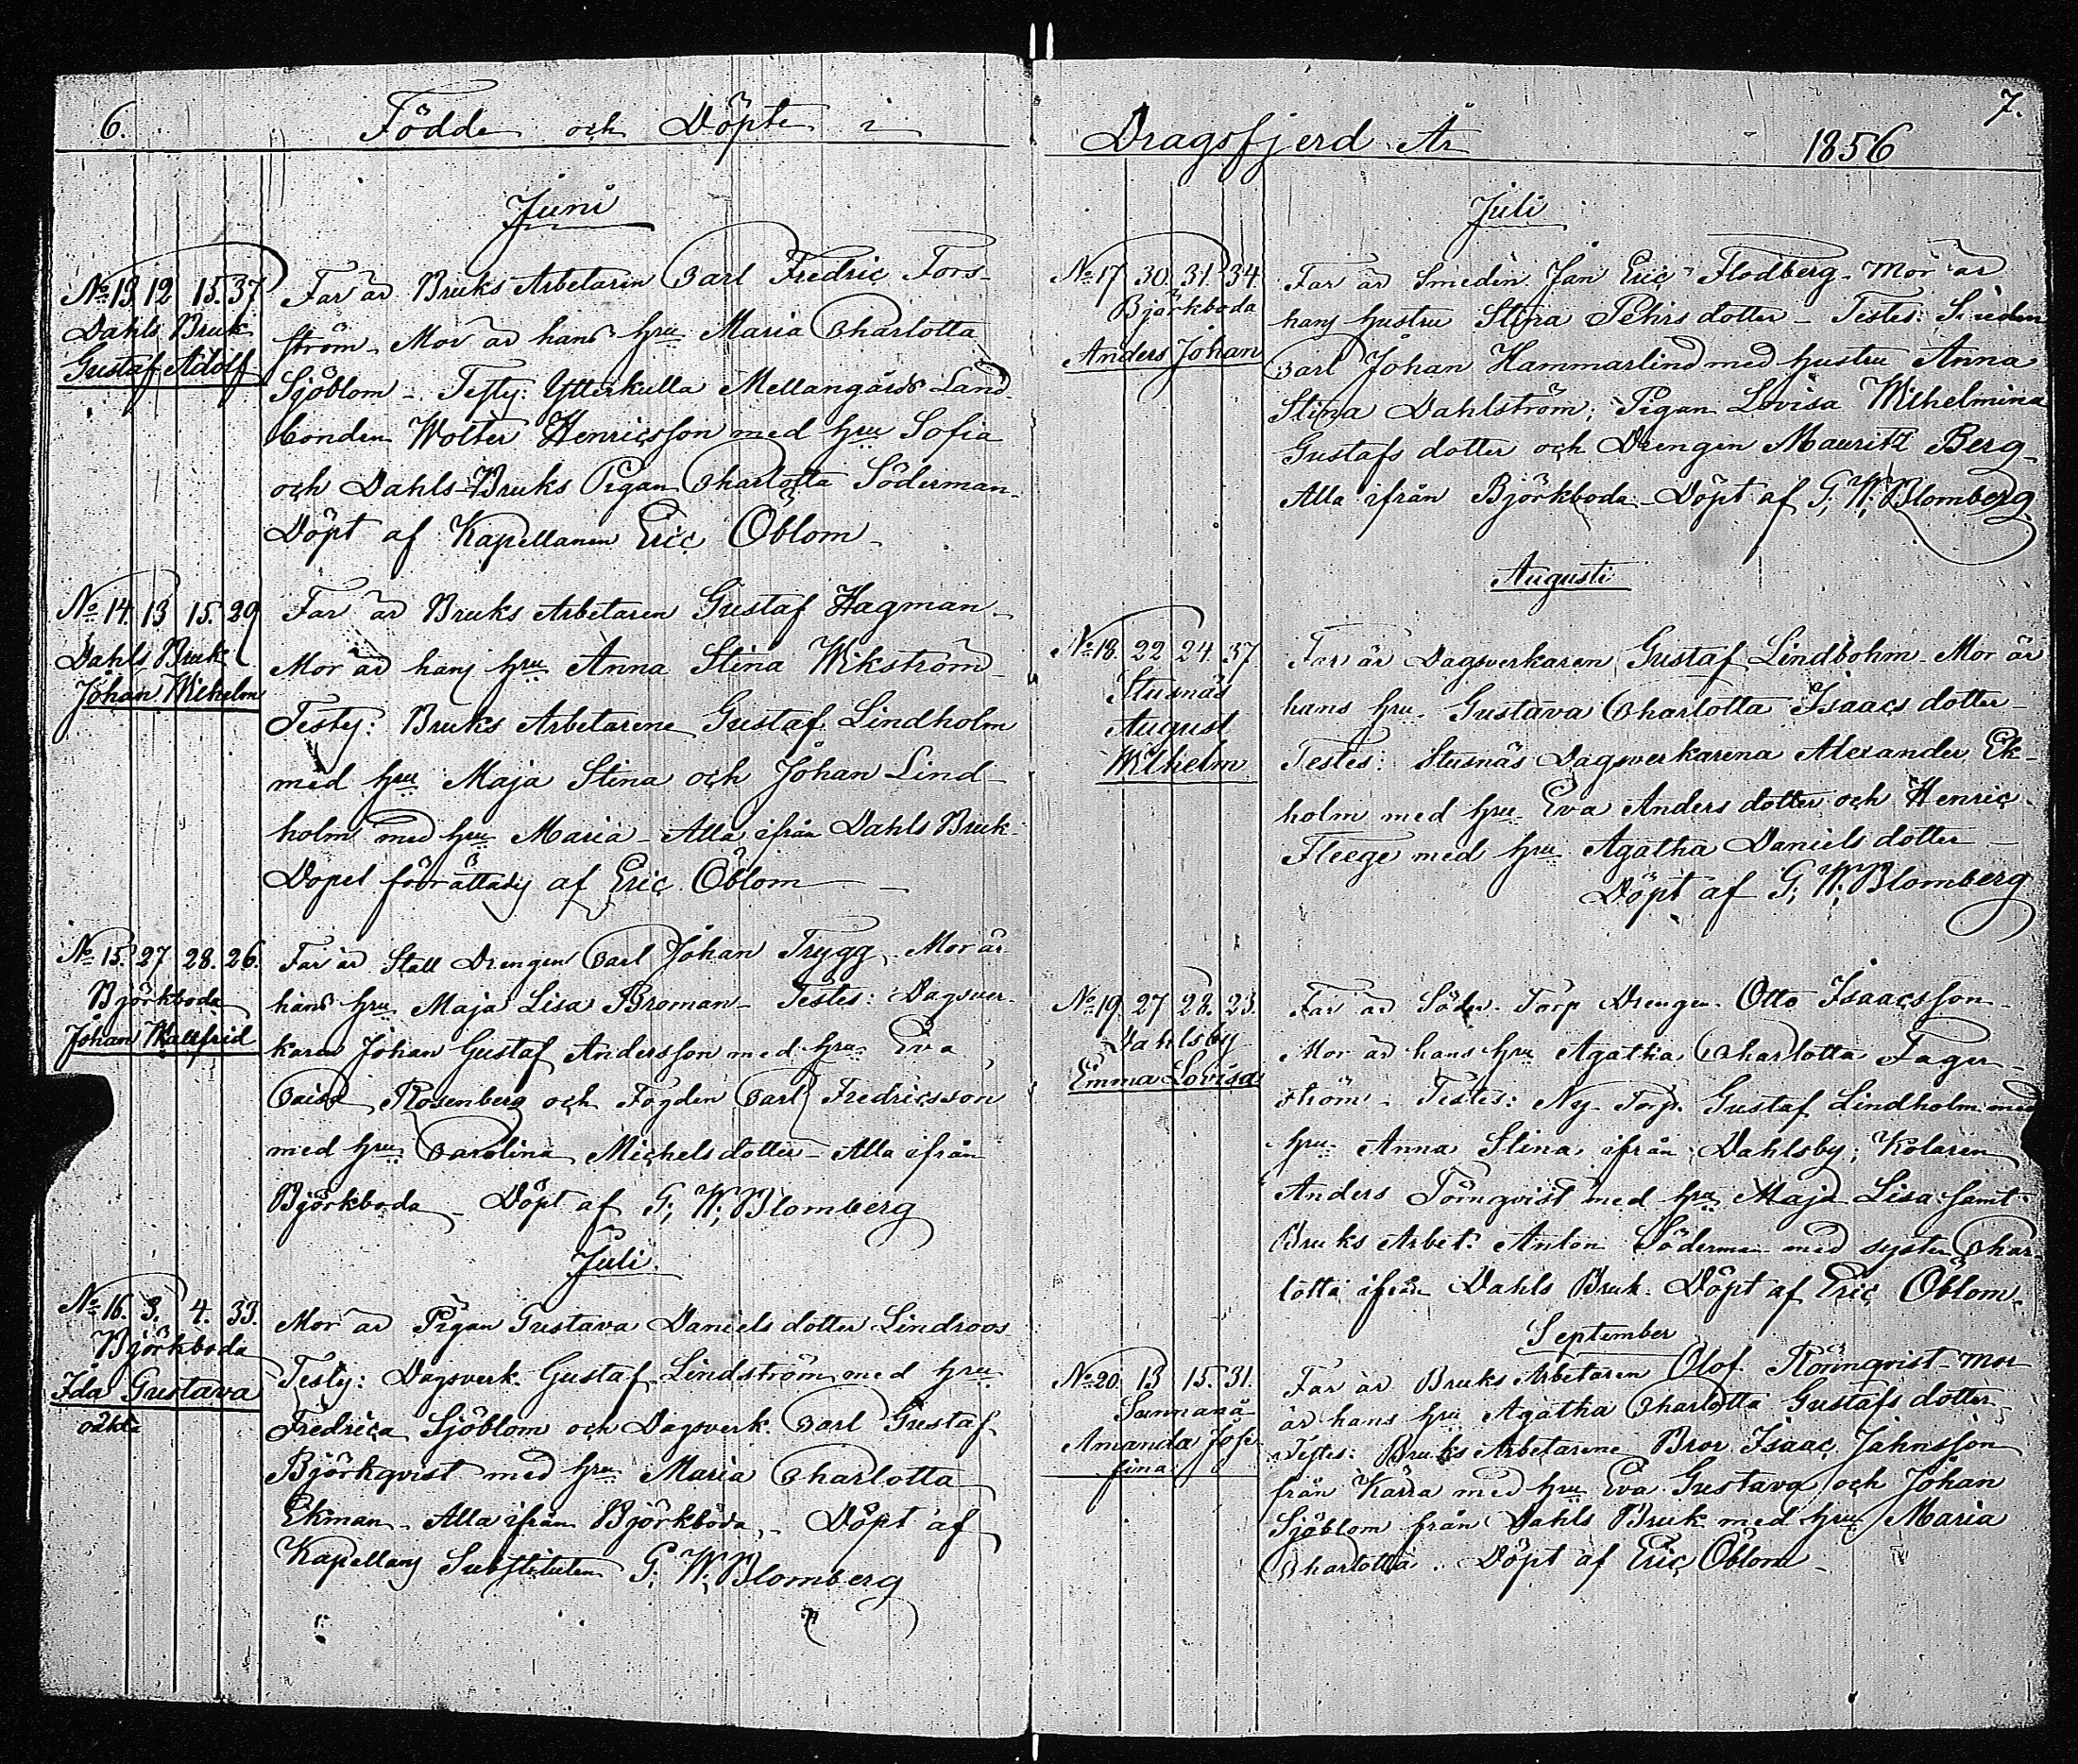 6.
Födde och Döpte i
Juni
No 13. 12 15. 37
Dahls Bruk
Gustaf Adolf
Far är Bruks Arbetaren Carl Fredric Fors-
ström. Mor är hans hru Maria Charlotta
Sjöblom - Testes: Ytterkulla Mellangårds Land-
bonden Wolter Henricsson med hru Sofia
och Dahls-Bruks Pigan Charlotta Söderman.
Döpt af Kapellanen Eric Öblom -
No 14. 13 15. 29
Dahls Bruk
Johan Wilhelm
Far är Bruks Arbetaren Gustaf Hagman -
Mor är hans hru Anna Stina Wikström
Testes: Bruks Arbetarene Gustaf Lindholm
med hru Maja Stina och Johan Lind-
holm med hru Maria - Alla ifrån Dahls Bruk.
Dopet förrättadis af Eric Öblom -
No 15. 27 28. 26.
Björkboda
Johan Wallfrid
Far är Stall Drengen Carl Johan Trygg. Mor är
hans hru Maja Lisa Broman - Testes: Dagsver-
karen Johan Gustaf Andersson med hru Eva
Caisa Rosenberg och Fogden Carl Fredricsson
med hru Carolina Michelsdotter - Alla ifrån
Björkboda - Döpt af G; W; Blomberg
Juli.
No 16. 3. 4. 33.
Björkboda
Ida Gustava
oäkta
Mor är Pigan Gustava Daniels dotter Lindroos
Testes: Dagsverk. Gustaf Lindström med hru
Fredrica Sjöblom och Dagsverk. Carl Gustaf
Björkqvist med hru Maria Charlotta
Ekman - Alla ifrån Björkboda, - Döpt af
Kapellans Substituten G; W; Blomberg
7.
Dragsfjerd År 1856
Juli
No 17 30. 31. 34.
Björkboda
Anders Johan
Far är Smeden Jan Eric Flodberg - Mor är
hans hustru Stina Pehrs dotter - Testes: Smeden
Carl Johan Hammarlind med hustru Anna
Stina Dahlström; Pigan Lovisa Wilhelmina
Gustafs dotter och Drengen Mauritz Berg -
Alla ifrån Björkboda - Döpt af G; W; Blomberg
Augusti
No 18. 22 24. 37
Stusnäs
August
Wilhelm
Far är Dagsverkaren Gustaf Lindbohm - Mor är
hans hru Gustava Charlotta Isaacs dotter -
Testes: Stusnäs Dagsverkarena Alexander Ek-
holm med hru Eva Anders dotter och Henric
Fleege med hru Agatha Daniels dotter -
Döpt af G; W; Blomberg
No 19. 27 28. 23.
Dahlsby
Emma Lovisa
Far är Söder Torp Drengen Otto Isaacsson -
Mor är hans hru Agatha Charlotta Fager-
ström - Testes: Ny Torp. Gustaf Lindholm med
hru Anna Stina ifrån Dahlsby; Kolaren
Anders Törnqvist med hru Maja Lisa samt
Bruks Arbet: Anton Söderman med systern Char-
lotta ifrån Dahls Bruk. Döpt af Eric Öblom.
September
No 20. 13 15. 31.
Sunnanå
Amanda Jose-
fina
Far är Bruks Arbetaren Olof Rönnqvist - Mor
är hans hru Agatha Charlotta Gustafs dotter -
Testes: Bruks Arbetarene Bror Isaac Jahnsson
från Kärra med hru Eva Gustava och Johan
Sjöblom från Dahls Bruk med hru Maria
Charlotta. Döpt af Eric Öblom -